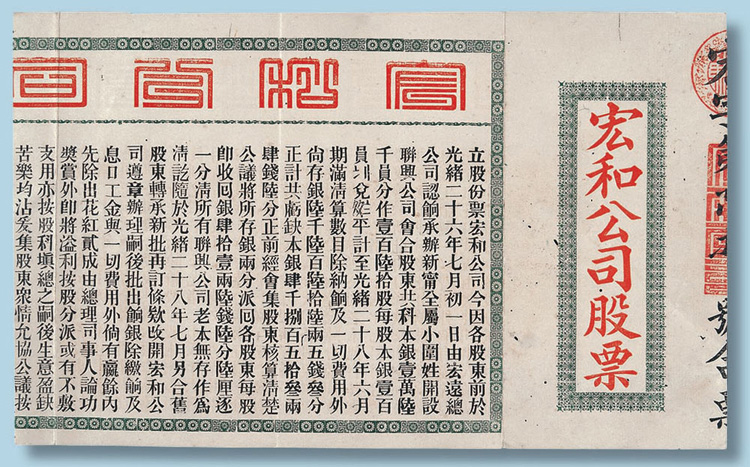 宏和公司股票
宏和公司
立股份票宏和公司今因各股東前於
光緒二十六年七月初一日由宏遠總
公司認餉承辦新甯全屬小圍姓開設
聯興公司會合股東共科本銀壹萬陸
千員分作壹百陸拾股每股本銀壹百
員兌平計至光緒二十八年六月
期滿清算數目除納餉及一切費用外
尚存銀陸千陸百陸拾陸兩五錢叄分
正計共虧缺本銀肆千捌百五拾叄兩
肆錢陸分正前經會集股東核算清楚
公議將所存銀兩分派囘各股東每股
即收囘銀肆拾壹兩陸錢陸分陸厘逐
一分清所有聯興公司老本無存作為
清訖隨於光緒二十八年七月另合舊
股東轉承新批再訂條欵改開宏和公
司遵章辦理嗣後批出餉銀除繳餉及
息日工金與一切費用外倘有贏餘內
先除出花紅貳成由總理司事人論功
獎賞外即將溢利按股分派或有不敷
支用亦按股科填總之嗣後生意盈缺
苦樂均沾爰集股東衆情允協公議按